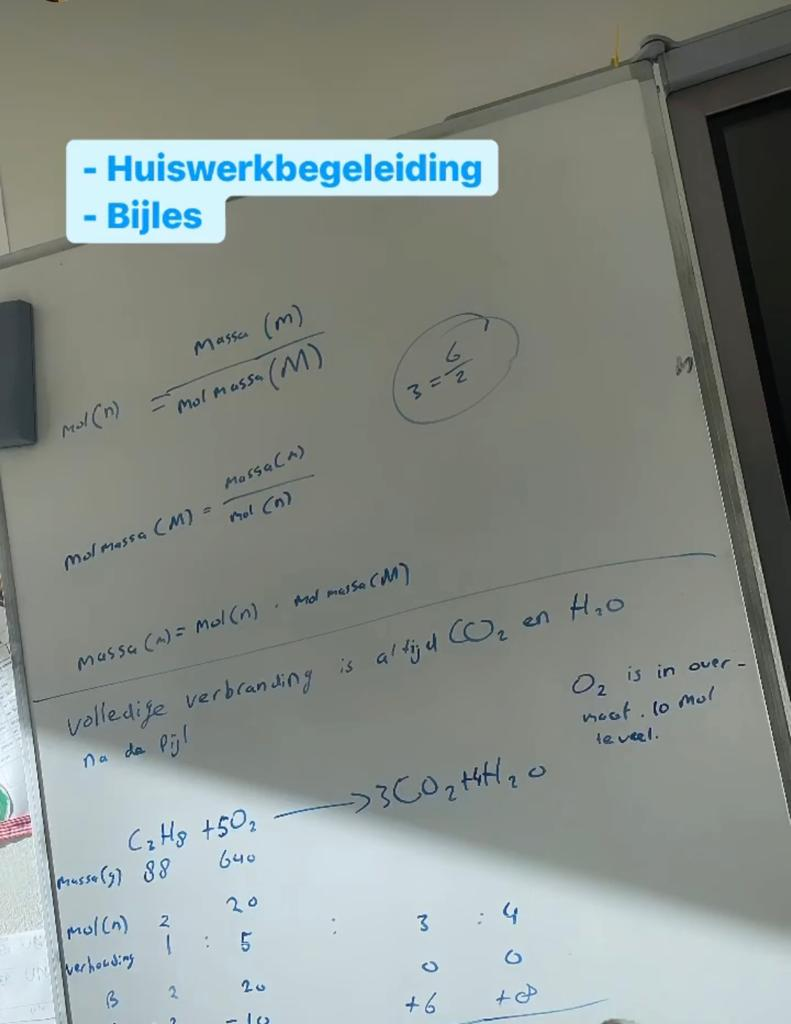 - Huiswerkbegeleiding
- Bijles
mol(n) = massa (m) / molmassa (M)
3 = 6/2
molmassa (M) = massa(m) / mol (n)
massa (m) = mol(n) · molmassa(M)
volledige verbranding is altijd CO₂ en H₂O
na de pijl
O₂ is in over-
maat. 10 mol
teveel.
C₃H₈ + 5O₂ → 3CO₂ + 4H₂O
massa(g) 88 640
mol(n) 2 20
verhouding 1 : 5 : 3 : 4
B 2 20 0 0
-10 +6 +8